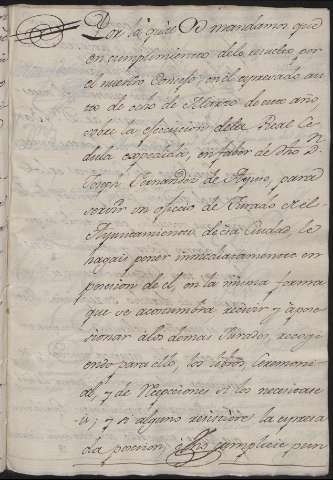 Por la qual os mandamos que
en cumplimiento de lo resuelto por
el nuestro Consejo, en el expresado au
to de ocho de Marzo de este año,
sobre la execucion de la Real Ce
dula expedida, en fabor de dho Dn
Joseph Fernandez de para
servir un oficio de Jurado del
Ayuntamiento de esa Ciudad, le
hagais poner inmediatamente en
posesion de el, en la misma forma
que se acostumbra recivir y apose
sionar a los demas Jurados, recogi
endo para ello, los libros, Ceremoni
al, y de Recepciones si los necesitase
is; y si alguno resistiere la expresa
da posesion, cumplais pun